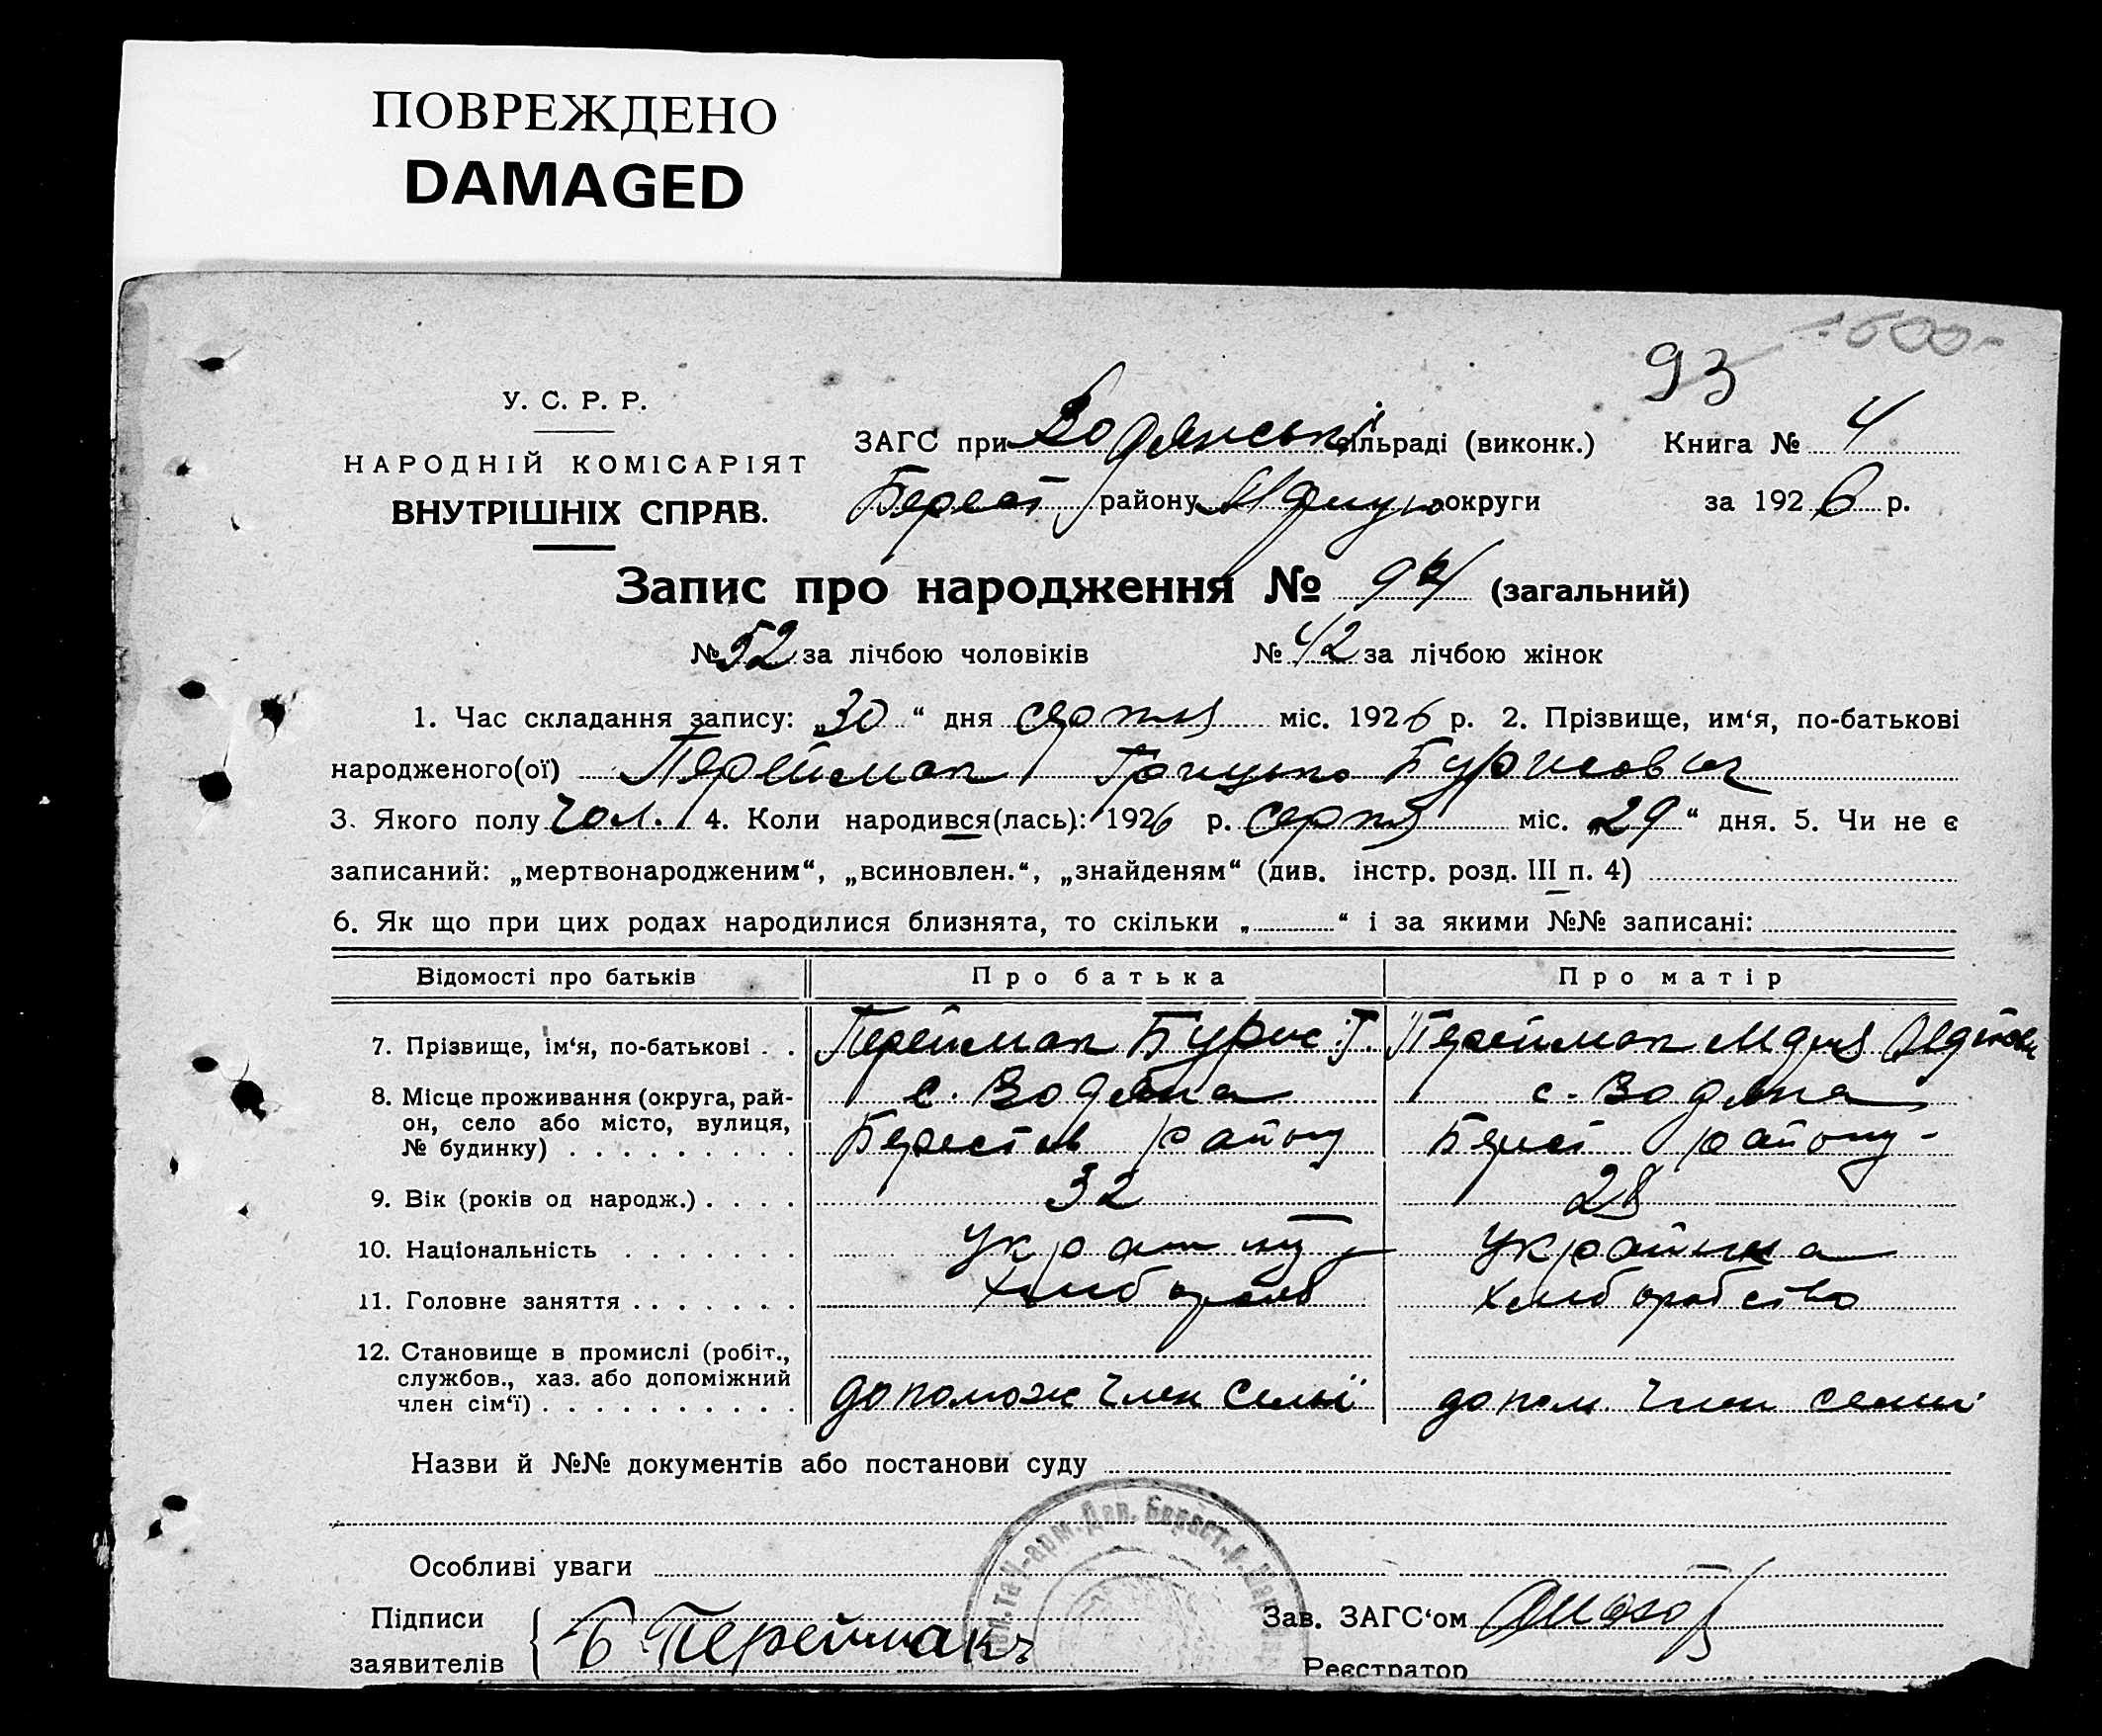 ПОВРЕЖДЕНО
DAMAGED
93
У. С. Р. Р.
НАРОДНІЙ КОМІСАРІЯТ
ВНУТРІШНІХ СПРАВ.
ЗАГС при Водянські сільраді (виконк.) Книга № 4
Берест району округи за 1926 р.
Запис про народження № 94 (загальний)
№ 52 за лічбою чоловіків № 42 за лічбою жінок
1. Час складання запису: „30“ дня серпня міс. 1926 р. 2. Прізвище, им‘я, по-батькові
народженого(ої) Перейман Грицько Бурисович
3. Якого полу чол. 4. Коли народився(лась): 1926 р. серпня міс. „29“ дня. 5. Чи не є
записаний: „мертвонародженим“, „всиновлен.“, „знайденям“ (див. інстр. розд. III п. 4)
6. Як що при цих родах народилися близнята, то скільки „ “ і за якими №№ записані:
Відомості про батьків Про батька Про матір
7. Прізвище, ім‘я, по-батькові . . Перейман Бурис Г. Перейман
8. Місце проживання (округа, рай- с. Водяна с. Водяна
он, село або місто, вулиця, Берестов району Берест району
№ будинку) . . . . . . . . .
9. Вік (років од народж.) . . . . 32 28
10. Національність . . . . . . . Українца
11. Головне заняття . . . . . . . хлибороб хлиборобство
12. Становище в промислі (робіт.,
службов., хаз. або допоміжний допомож член семьї допом член семьї
член сім‘ї) . . . . . . . . . .
Назви й №№ документів або постанови суду
Особливі уваги
Підписи Зав. ЗАГС‘ом
заявителів Б Перейман Реєстратор